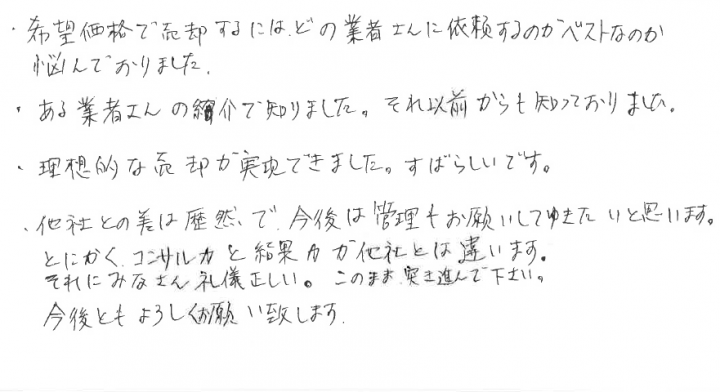 ・希望価格で売却するには、どの業者さんに依頼するのがベストなのか
悩んでおりました。
・ある業者さんの紹介で知りました。それ以前からも知っておりました。
・理想的な売却が実現できました。すばらしいです。
・他社との差は歴然で、今後は管理もお願いしてゆきたいと思います。
とにかく、コンサル力と結果力が他社とは違います。
それにみなさん礼儀正しい。このまま突き進んで下さい。
今後ともよろしくお願い致します。